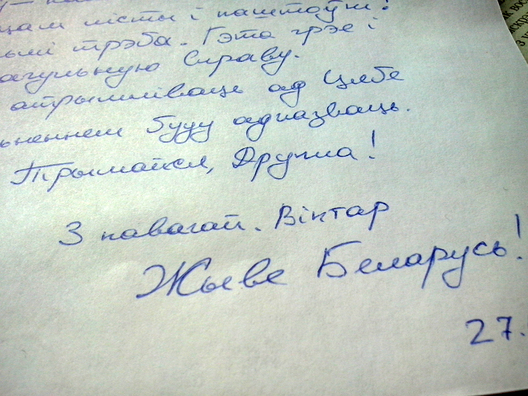 цам лісты і паштоўкі!
трэба. Гэта грэе і
агульную Справу.
атрымліваць ад Цябе
буду адказваць.
Трымайся, Дружа!
З павагай. Віктар
Жыве Беларусь!
27.